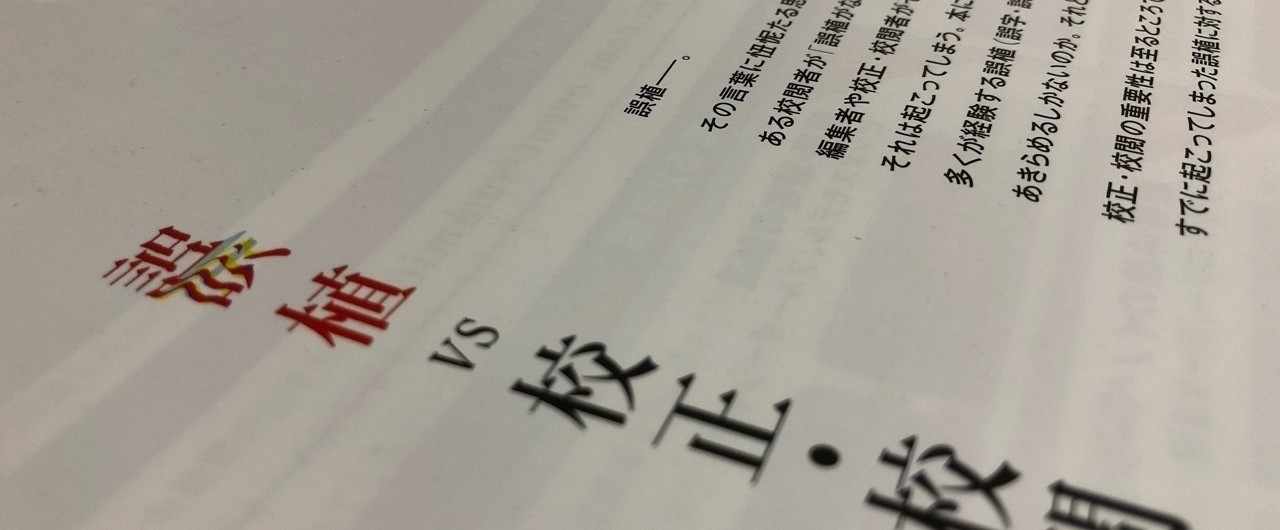 誤植 vs 校正・校
誤植――。
その言葉に忸怩たる思
ある校閲者が「誤植がな
編集者や校正・校閲者が
それは起こってしまう。本に
多くが経験する誤植（誤字・誤
あきらめるしかないのか。それと
校正・校閲の重要性は至るところで
すでに起こってしまった誤植に対する